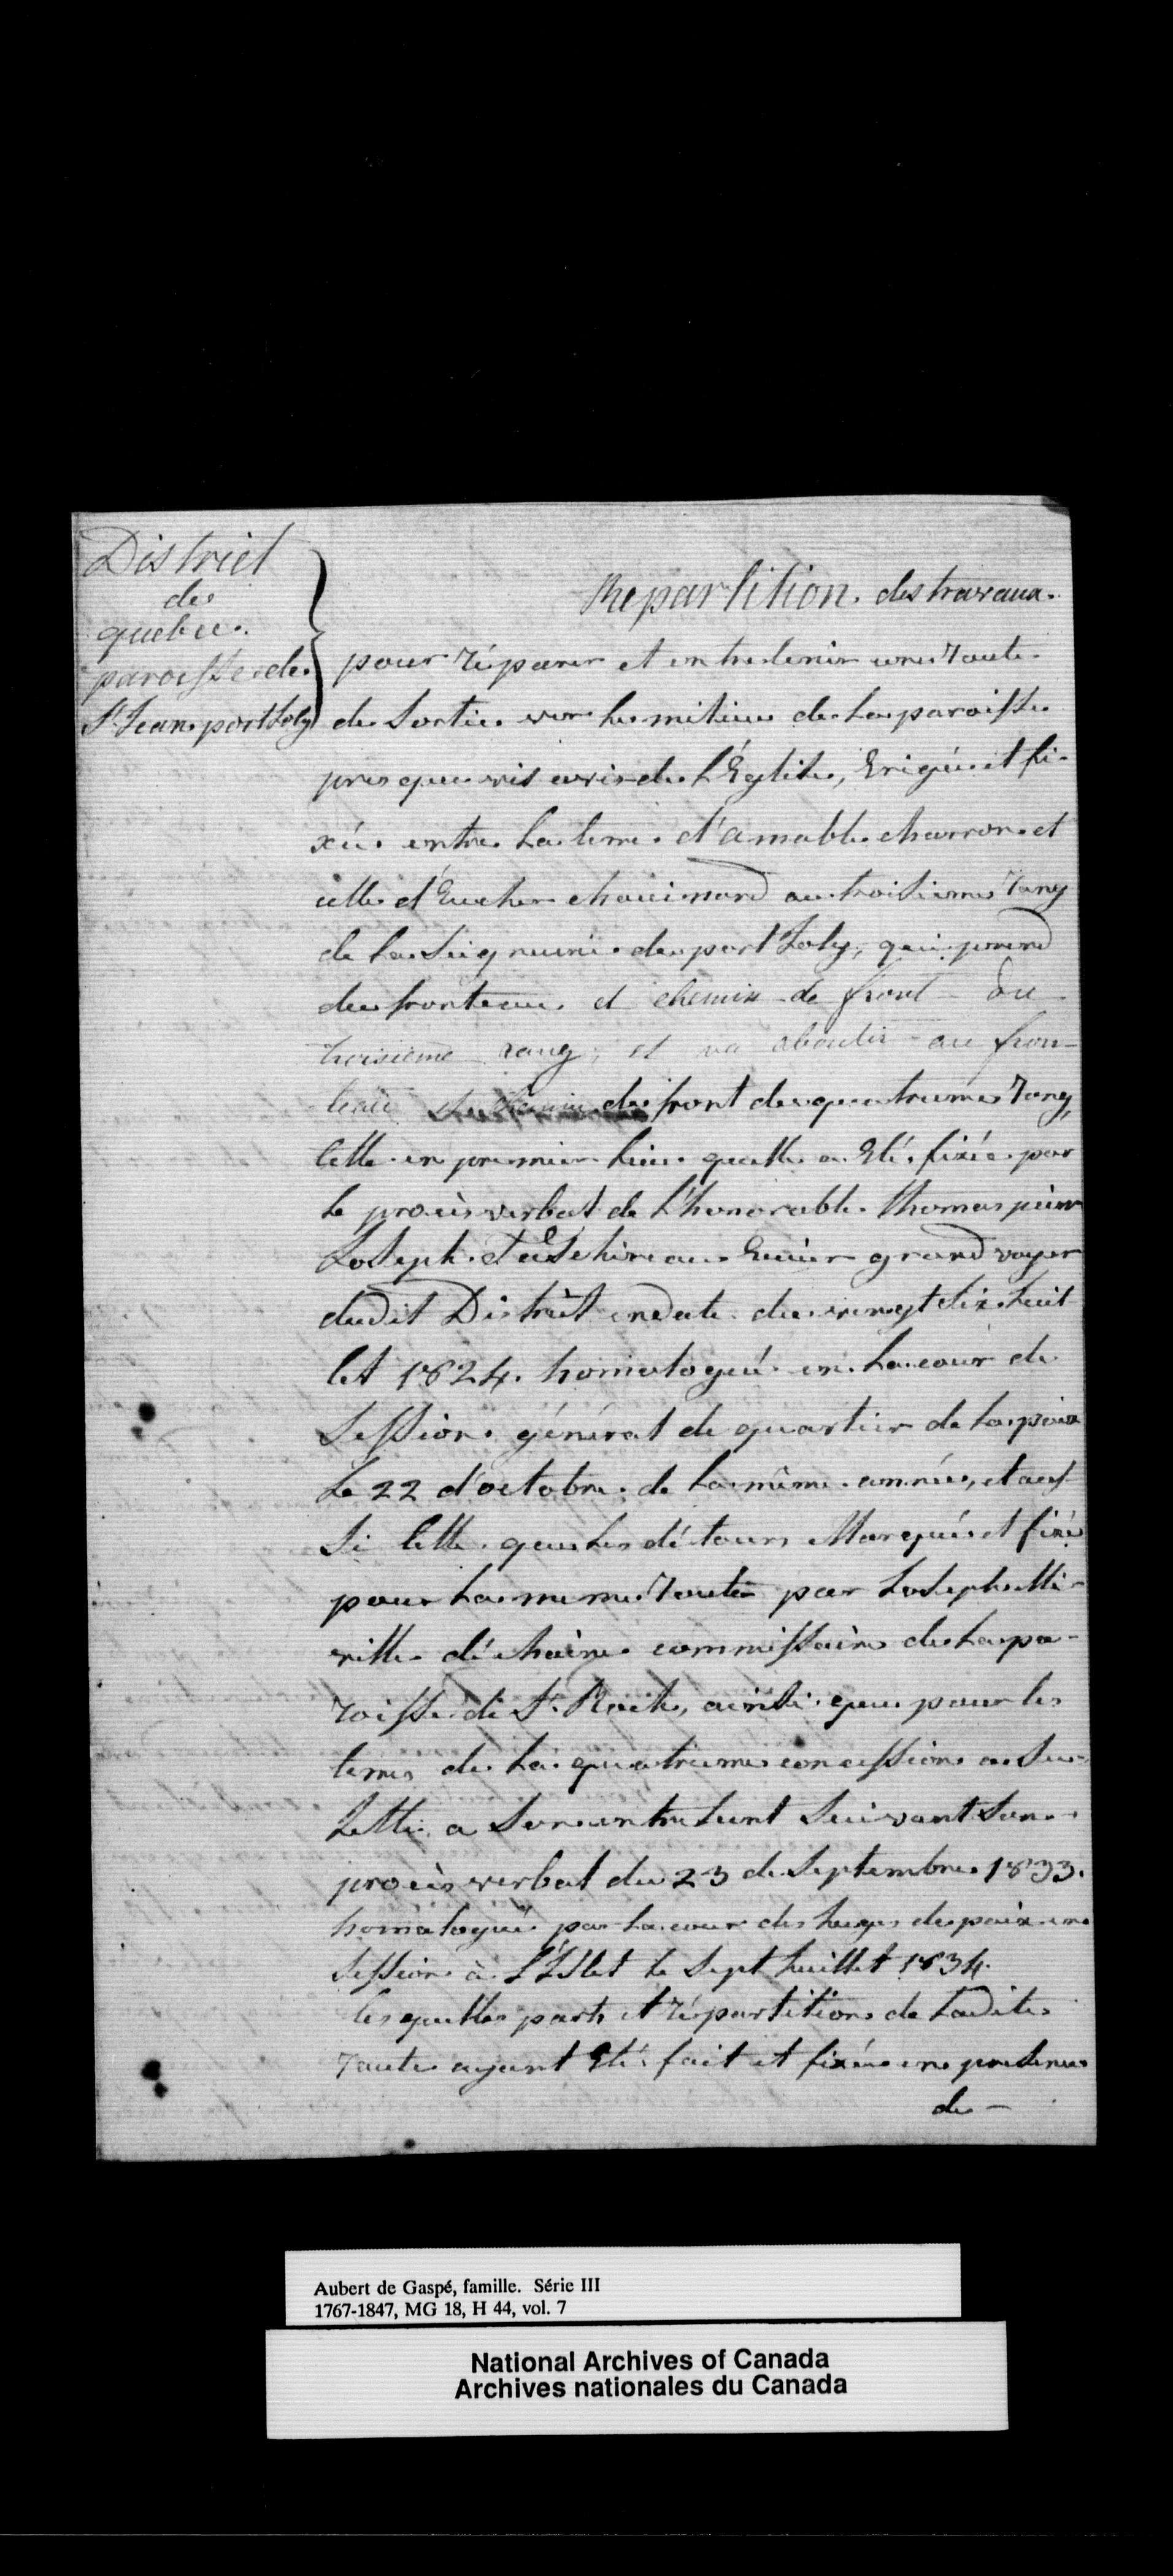 District
de
quebec.
paroisse de
St Jean port Joly
Repartition des travaux
pour réparer et entretenir une Route
de Sortie ver le milieu de la paroisse
presque vis avis de L'Église, Erigée et fi-
xée entre la terre d'amable charron et
celle d'Eucher chouinard au troisieme Rang
de la Seigneurie de port Joly, qui prend
du fronteau et chemin de front du
troisieme rang, et va aboutir au fron-
teau du chemin de front du quatrieme Rang,
telle en premier lieu quelle a Eté fixée par
le procès verbal de L'honorable thomas pierre
Joseph Taschereau Ecuier grand voyer
dudit District en date du vingt six Juil
let 1824. homologué en la cour de
Session général de quartier de la paix
Le 22 d'octobre de la même année, et aus
si telle que les détours Marqué et fixé
pour la meme Route par Joseph Mi-
ville déchaine commissaire de la pa-
roisse de St. Roch, ainsi que pour les
terres de la quatrieme concession
a Son entre Sunt Suivant Son
procès verbal du 23 de Septembre 1833.
homologué par la cour des Juges de paix en
Session à L'Islet le Sept Juillet 1834.
les quelles parts et répartition de Ladite
Route ayant Eté fait et fixée en presence
de -
Aubert de Gaspé, famille. Série III
1767-1847, MG 18, H 44, vol. 7
National Archives of Canada
Archives nationales du Canada